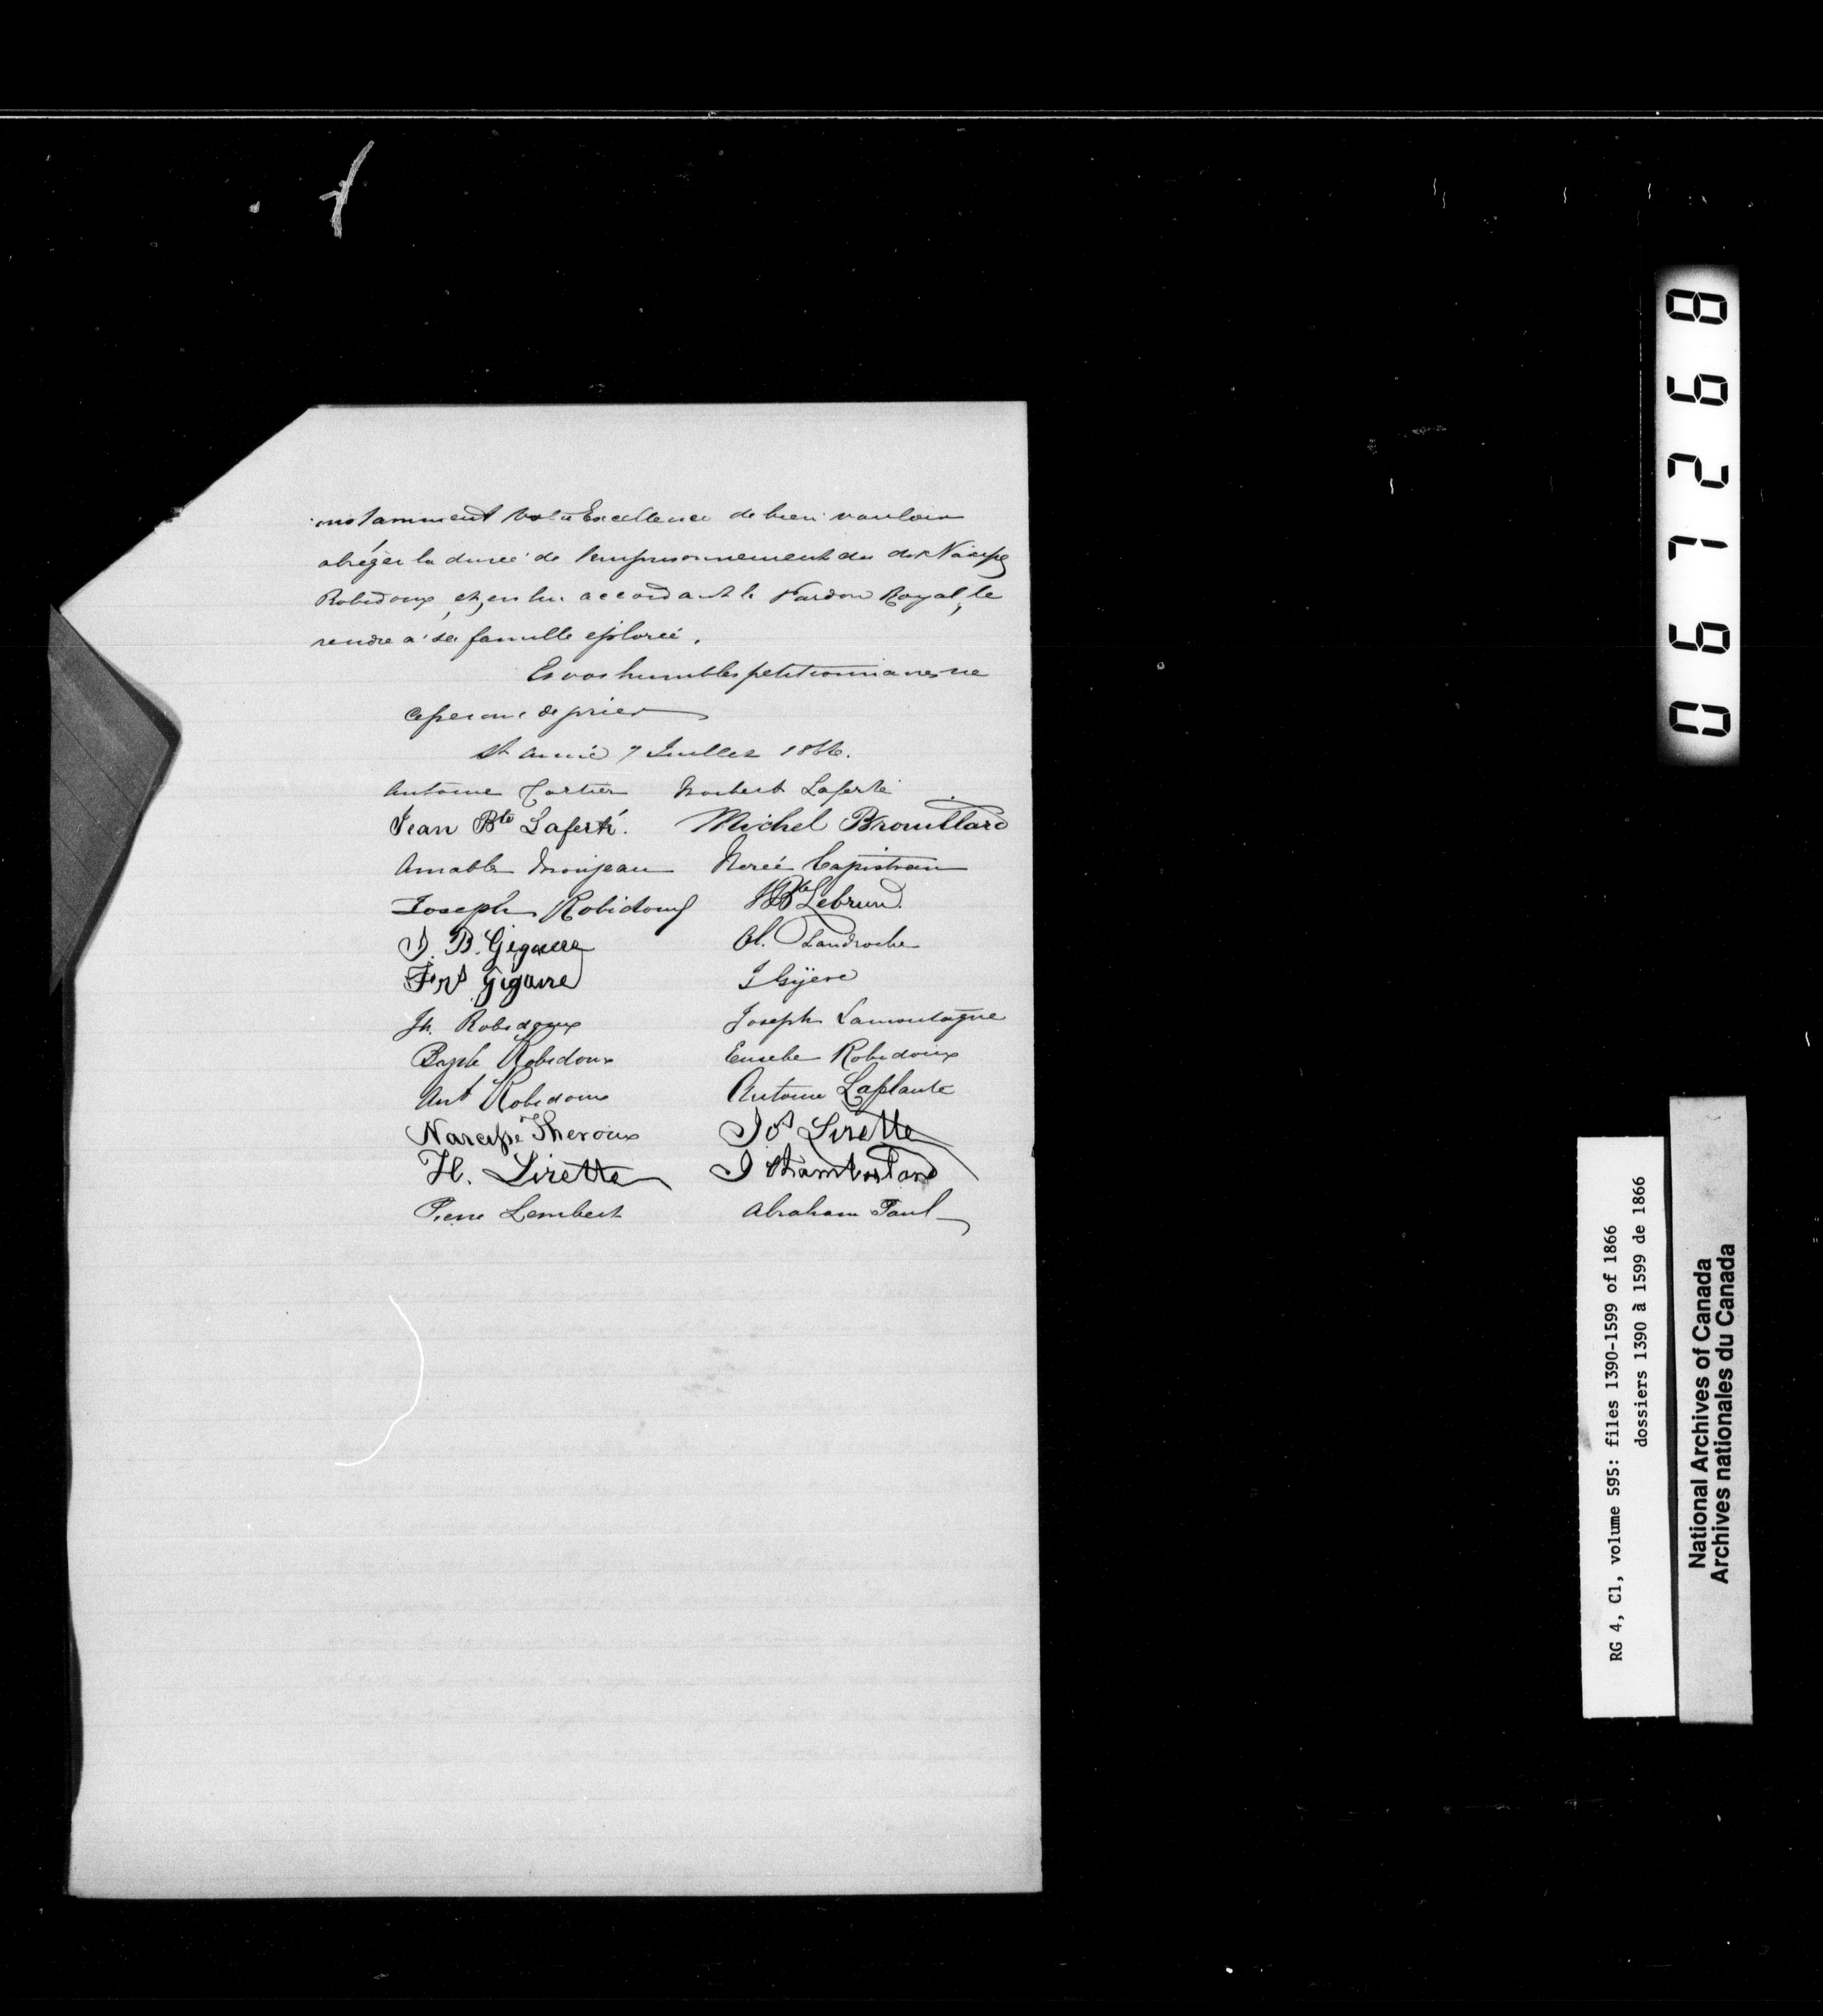 instamment Votre Excellence de bien vouloir
abréger la durée de l'emprisonnement du dit Narcisse
Robidoux, et, en lui accordant le Pardon Royal, le
rendre à sa famille eplorée.
Et vos humbles petitionnaires ne
cesseront de prier
St Aimé 7 Juillet 1866.
Antoine Cartier Norbert Laferté
Jean Bte Laferté. Michel Brouillard
Amable Monjeau Nerée Capistran
Joseph Robidoux JBte Lebrun.
J. B. Gigaire Ol. Landroche
Frs Gigaire J
Jh. Robidoux Joseph Lamontagne
Bazile Robidoux Eusebe Robidoux
Ant Robidoux Antoine Laplante
Narcisse Theroux Jos Lirette
H. Lirette J Chamberland
Pierre Lembert Abraham Paul
067268
RG 4, C1, volume 595: files 1390-1599 of 1866
dossiers 1390 à 1599 de 1866
National Archives of Canada
Archives nationales du Canada